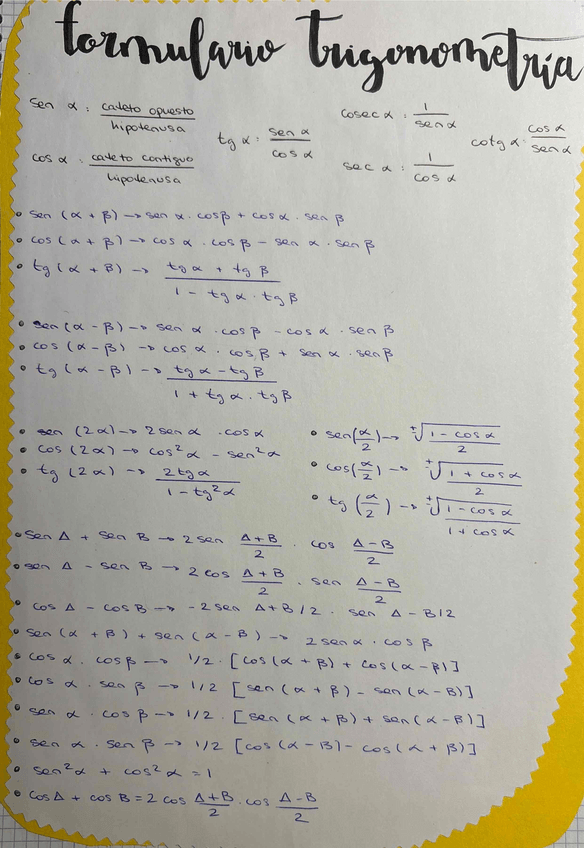 formulario trigonometría
sen α : cateto opuesto / hipotenusa
cos α : cateto contiguo / hipotenusa
tg α : sen α / cos α
cosec α : 1 / sen α
sec α : 1 / cos α
cotg α : cos α / sen α
• sen (α + β) → sen α · cos β + cos α · sen β
• cos (α + β) → cos α · cos β − sen α · sen β
• tg (α + β) → tg α + tg β / 1 − tg α · tg β
• sen (α − β) → sen α · cos β − cos α · sen β
• cos (α − β) → cos α · cos β + sen α · sen β
• tg (α − β) → tg α − tg β / 1 + tg α · tg β
• sen (2α) → 2 sen α · cos α
• cos (2α) → cos² α − sen² α
• tg (2α) → 2 tg α / 1 − tg² α
• sen (α/2) → ±√ 1 − cos α / 2
• cos (α/2) → ±√ 1 + cos α / 2
• tg (α/2) → ±√ 1 − cos α / 1 + cos α
• sen A + sen B → 2 sen A+B / 2 · cos A−B / 2
• sen A − sen B → 2 cos A+B / 2 · sen A−B / 2
• cos A − cos B → −2 sen A+B/2 · sen A−B/2
• sen (α + β) + sen (α − β) → 2 sen α · cos β
• cos α · cos β → 1/2 · [cos (α + β) + cos (α − β)]
• cos α · sen β → 1/2 [sen (α + β) − sen (α − β)]
• sen α · cos β → 1/2 · [sen (α + β) + sen (α − β)]
• sen α · sen β → 1/2 [cos (α − β) − cos (α + β)]
• sen² α + cos² α = 1
• cos A + cos B = 2 cos A+B / 2 · cos A−B / 2